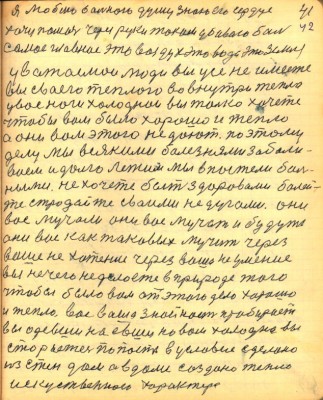 Я люблю больного душу знаю его сердце 41
хочу помоч через руки током убиваю бол 42
самое главное это воздух это вода это земля
уважаемои люди вы уже не имеете
вы своего теплого во внутри тепло
у вас ноги холоднои вы только хочете
чтобы вам было хорошо и тепло
а они вам этого не дают. поэтому
делу мы всякими болезнями заболи-
ваем и долго лежим мы в постели бол-
ными. не хочете быт здоровами болей-
те страдайте своими недугами. они
вас мучали они вас мучать и будуть
они вас как таковых мучит через
ваше не хотение через ваше не умение
вы нечего не делаете в природе того
чтобы было вам от этого дело хорошо
и тепло. вас ваше знайкает пробирает
вы одевши наевши но вам холодно вы
сторожаетес попасть в условие сделано
из стен дом а в доми создано тепло
искуственного характера